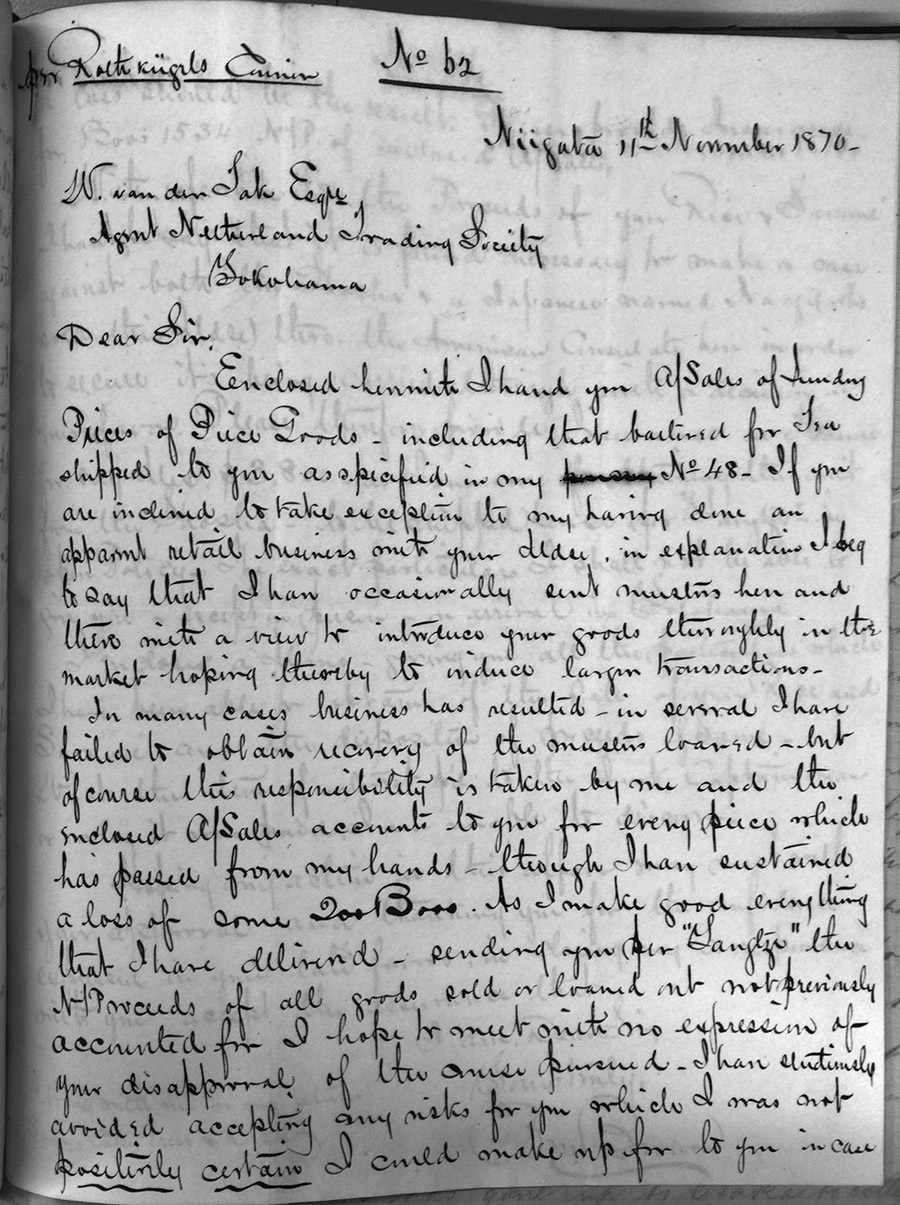 per Rothkügels Courier No 62
Niigata 11th November 1870-
W. van der Tak Esqre
Agent Netherland Trading Society
Yokohama
Dear Sir,
Eenclosed herewith I hand you A/Sales of Sundry
Prices of Piece Goods - including that bartered for Tea
shipped to you as specified in my No 48- If you
are inclined to take exception to my having done an
apparent retail business with your Oldee, in explanation I beg
to say that I have occasionally sent musters here and
there with a view to introduce your goods thoroughly in the
market hoping thereby to induce larger transactions-
In many cases business has resulted - in several I have
failed to obtain recovery of the musters loaned - but
of course this responsibility is taken by me and the
inclosed A/Sales accounts to you for every piece which
has passed from my hands - though I have sustained
a loss of some 200 Boos. As I make good everything
that I have delivered - sending you per "Yangtze" the
N/Proceeds of all goods sold or loaned out not previously
accounted for I hope to meet with no expression of
your disapproval of the course pursued - I have studiously
avoided accepting any risks for you which I was not
positively certain I could make up for to you in case